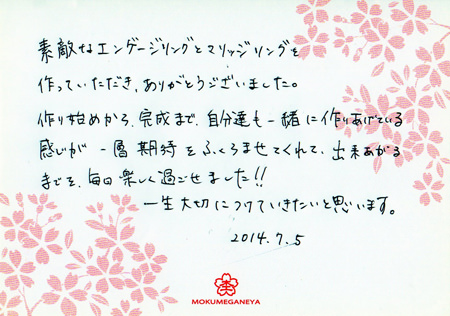 素敵なエンゲージリングとマリッジリングを
作っていただき、ありがとうございました。
作り始めから、完成まで、自分達も一緒に作りあげている
感じが一層期待をふくらませてくれて、出来あがる
までを、毎日楽しく過ごせました!!
一生大切につけていきたいと思います。
2014.7.5
MOKUMEGANEYA